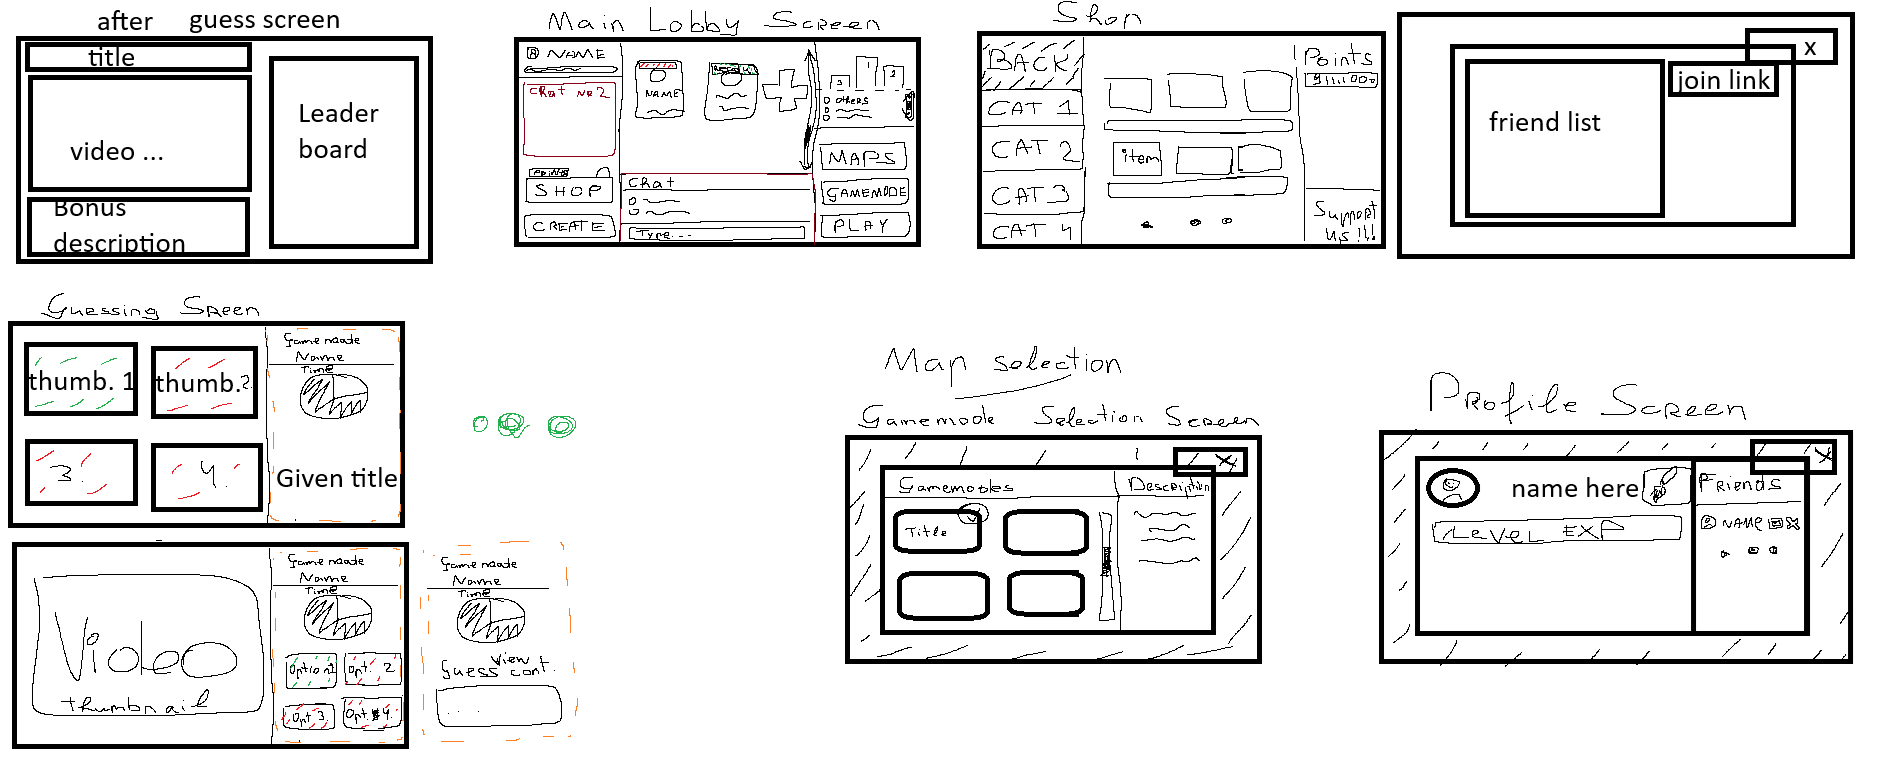 after guess screen
title
video ...
Bonus
description
Leader
board
Main Lobby Screen
NAME
Chat NR 2
Points
SHOP
CREATE
NAME
Chat
Type...
1
2
3
Others
MAPS
GAMEMODE
PLAY
Shop
BACK
CAT 1
CAT 2
CAT 3
CAT 4
item
Points
Support
us!!!
x
join link
friend list
Guessing Screen
thumb. 1
thumb. 2
3.
4.
Gamemode
Name
Time
Given title
Video
thumbnail
Gamemode
Name
Time
Option 1
Opt. 2
Opt 3.
Opt. 4.
Gamemode
Name
Time
View
Guess cont.
....
Map selection
Gamemode Selection Screen
X
Gamemodes
Description
Title
Profile Screen
X
name here
Friends
Level EXP
NAME